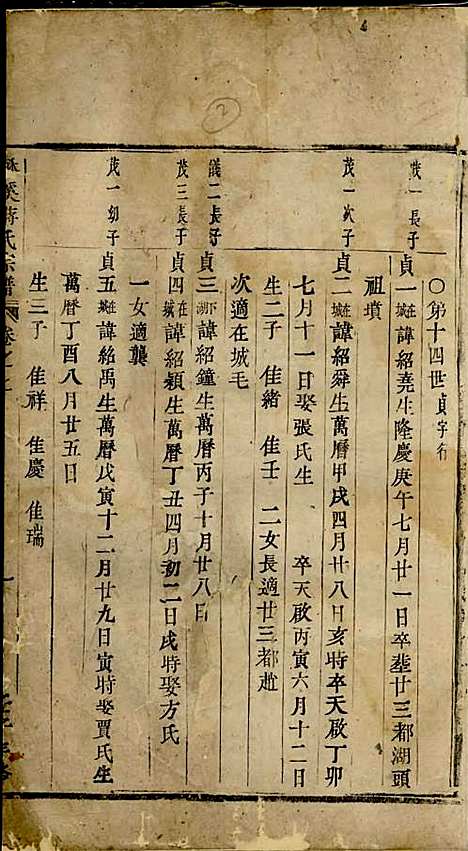 ②
○第十四世貞字行
茂一長子 貞一在城諱紹堯生隆慶庚午七月廿一日卒塟廿三都湖頭
祖墳
茂一次子 貞二在城諱紹舜生萬曆甲戌四月廿八日亥時卒天啟丁卯
七月十一日娶張氏生 卒天啟丙寅六月十二日
生二子 佳緒 佳壬 二女長適廿三都趙
次適在城毛
二長子 貞三諱紹鐘生萬曆丙子十月廿八日
茂三長子 貞四在城諱紹穎生萬曆丁丑四月初二日戌時娶方氏
一女適龔
茂一幼子 貞五在城諱紹禹生萬曆戊寅十二月廿九日寅時娶賈氏生
萬曆丁酉八月廿五日
生三子 佳祥 佳慶 佳瑞
溪蔣氏宗譜 卷之